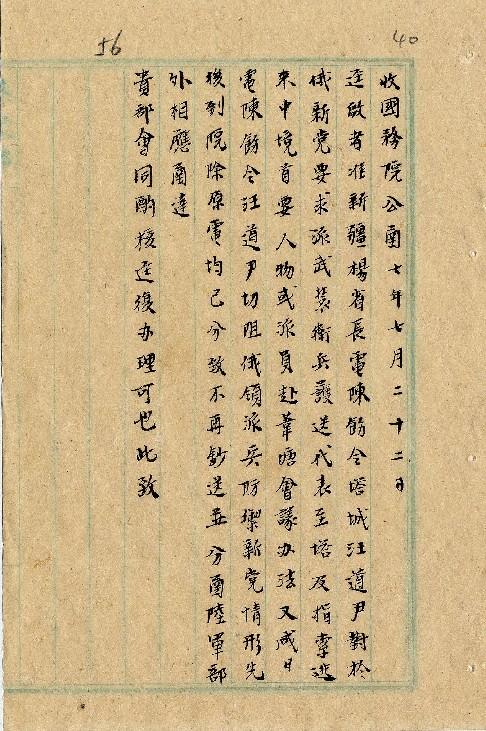 56
40
收國務院公函七年七月二十二日
逕啟者准新疆楊省長電陳飭令塔城汪道尹對於
俄新党要求派武裝衛兵護送代表至塔及指索逃
來中境首要人物或派員赴葦塘會議办法又咸日
電陳飭令汪道尹切阻俄領派兵防禦新党情形先
後到院除原電均已分致不再鈔送並分函陸軍部
外相應函達
貴部會同酌核逕復办理可也此致